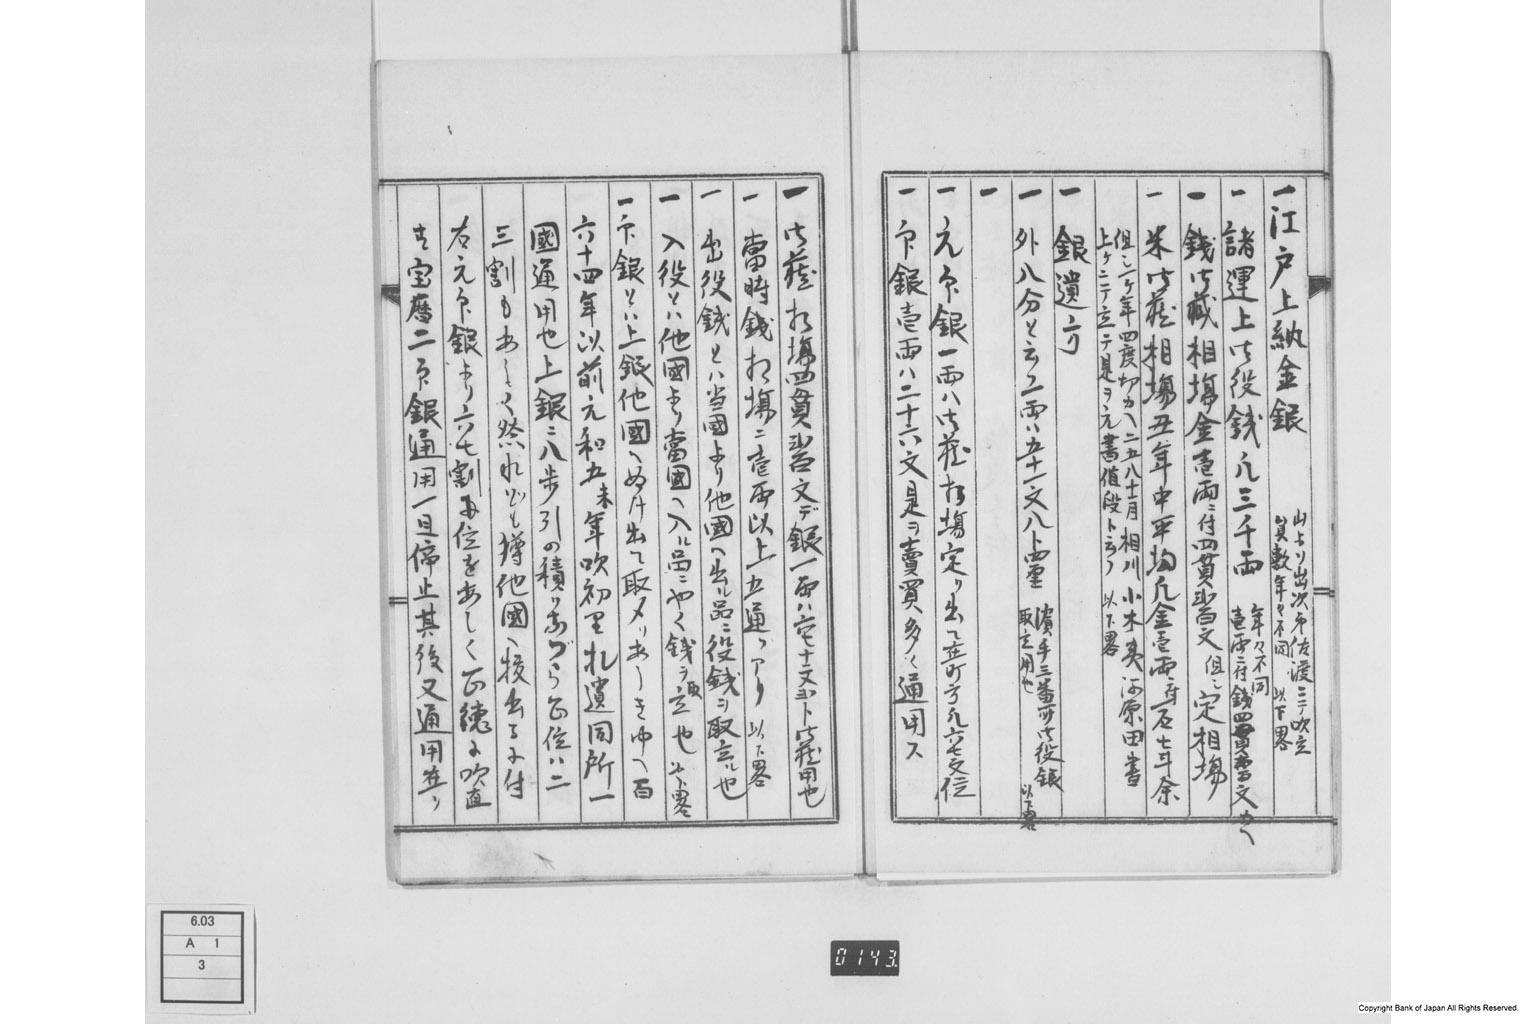 一 江戸上納金銀 山より出次第佐渡ニテ吹立
員数年々不同 以下畧
一 諸運上御役銭凡三千両 年々不同
壱両ニ付銭四貫
一 銭御蔵相場金壱両ニ付四貫 文 但シ定相場
一 米御蔵相場丑年中平均凡金壱両ニ付 石七斗余
但シ一ヶ年四度切カヘ二五八十一月相川小木 河原田書
上ケニテ立テ是ヲ元書値段ト云フ 以下畧
一 銀遣方
一 外八分と云フ一両ハ五十一文八ト四 濱手三番所御役銀
取立用也 以下畧
一
一 元印銀一両ハ御蔵相場定り出て在町方凡六七文位
一 印銀壱両ハ二十六文是ヲ賣買多く通用ス
一 御蔵相場四貫 文デ銀一両ハ 十二文 ト御蔵用也
一 當時銭相場ニ壱両以上五通リアリ 以下畧
一 出役銭とハ当国より他國へ出ル品ニ役銭ヲ取立ル也
一 入役とハ他國より當國へ入ル品ニ やく銭ヲ取立也 以下畧
一 印銀とハ上銀他國へぬけ出て取〆りあしきゆへ百
六十四年以前元和五未年吹初 札遣同所一
國通用也上銀ニ八歩引の積り ながら 位ハ二
三割もあしく然れども 他國へ 出るに付
右元印銀より六七割 位をあしく正徳に吹直
す宝暦二 印銀通用一旦停止其後又通用在り
6.03
A 1
3
0143
Copyright Bank of Japan All Rights Reserved.